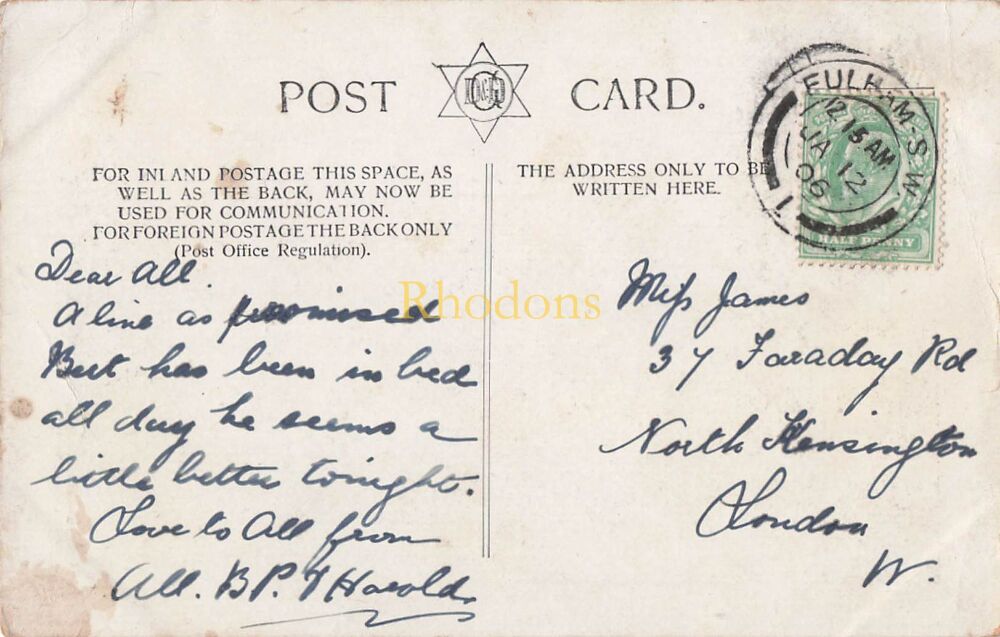 POST D&G CARD.
FOR INLAND POSTAGE THIS SPACE, AS
WELL AS THE BACK, MAY NOW BE
USED FOR COMMUNICATION.
FOR FOREIGN POSTAGE THE BACK ONLY
(Post Office Regulation).
Dear All.
A line as promised
Bert has been in bed
all day he seems a
little better tonight.
Love to All from
All. B P. & Harold.
THE ADDRESS ONLY TO BE
WRITTEN HERE.
FULHAM-S.W.
12.15 AM
JA 12
06
1
HALF PENNY
Miss James
37 Faraday Rd
North Kensington
London
W.
Rhodons